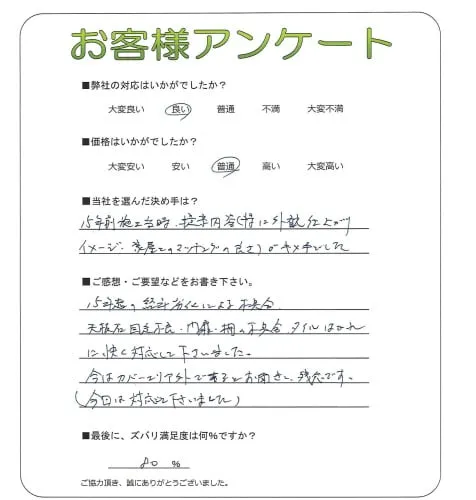 お客様アンケート
■弊社の対応はいかがでしたか？
大変良い 良い 普通 不満 大変不満
■価格はいかがでしたか？
大変安い 安い 普通 高い 大変高い
■当社を選んだ決め手は？
15年前施工当時、提案内容(特に外観仕上がり
イメージ、茶屋とのマッチングの良さ)がキメ手でした
■ご感想・ご要望などをお書き下さい。
15年超の経年劣化による不具合
天板石固定不良・門扉・柵の不具合、タイルはがれ
に快く対応して下さいました。
今はカバーエリア外であるとお聞きし、残念です。
(今回は対応して下さいました)
■最後に、ズバリ満足度は何%ですか？
80 %
ご協力頂き、誠にありがとうございました。